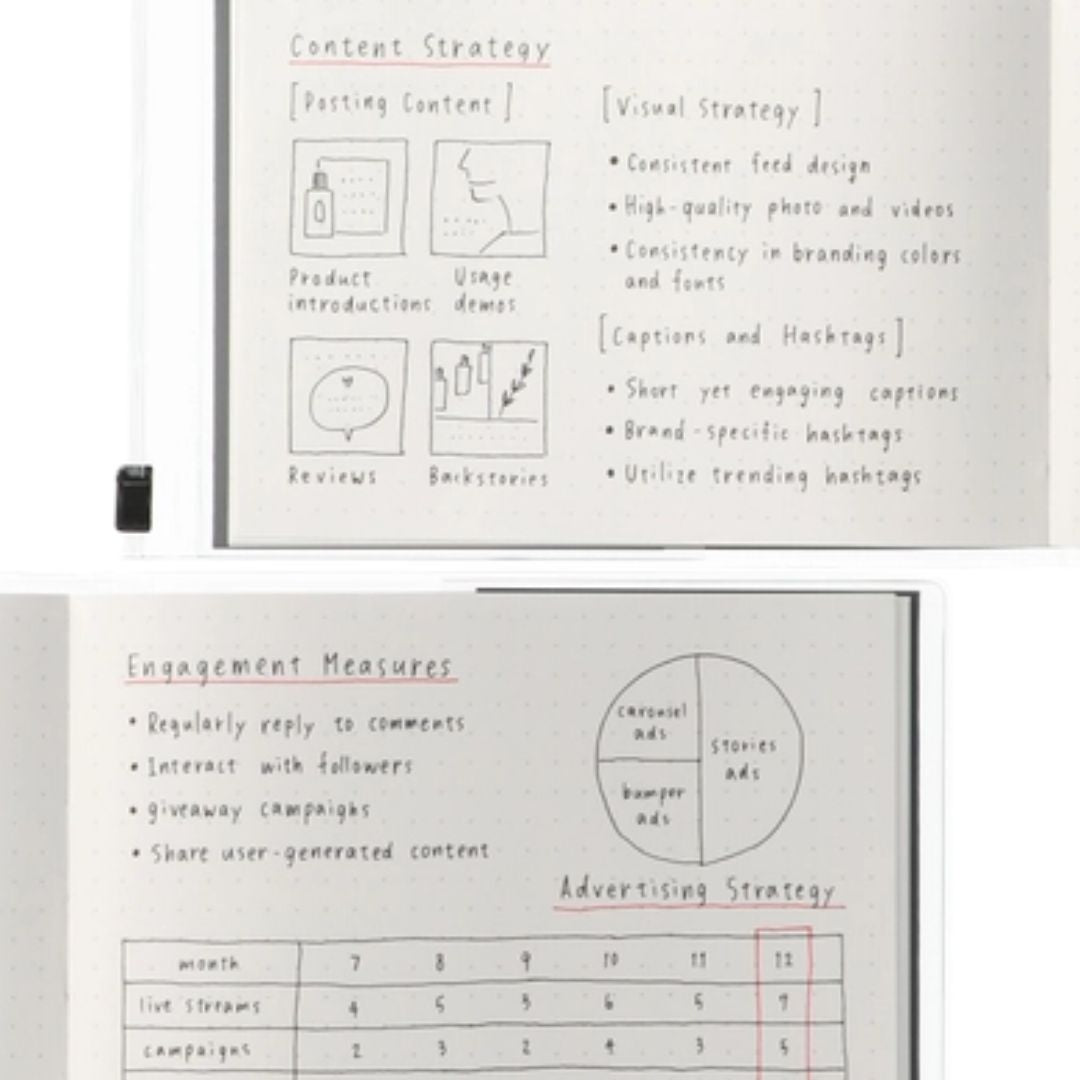 Content Strategy
[Posting Content]
Product
introductions
Usage
demos
Reviews
Backstories
[Visual Strategy]
• Consistent feed design
• High-quality photo and videos
• Consistency in branding colors
and fonts
[Captions and Hashtags]
• Short yet engaging captions
• Brand-specific hashtags
• Utilize trending hashtags
Engagement Measures
• Regularly reply to comments
• Interact with followers
• giveaway campaighs
• Share user-generated content
carousel
ads
bumper
ads
Stories
ads
Advertising Strategy
month 7 8 9 10 11 12
live streams 4 5 3 6 5 7
campaigns 2 3 2 4 3 5